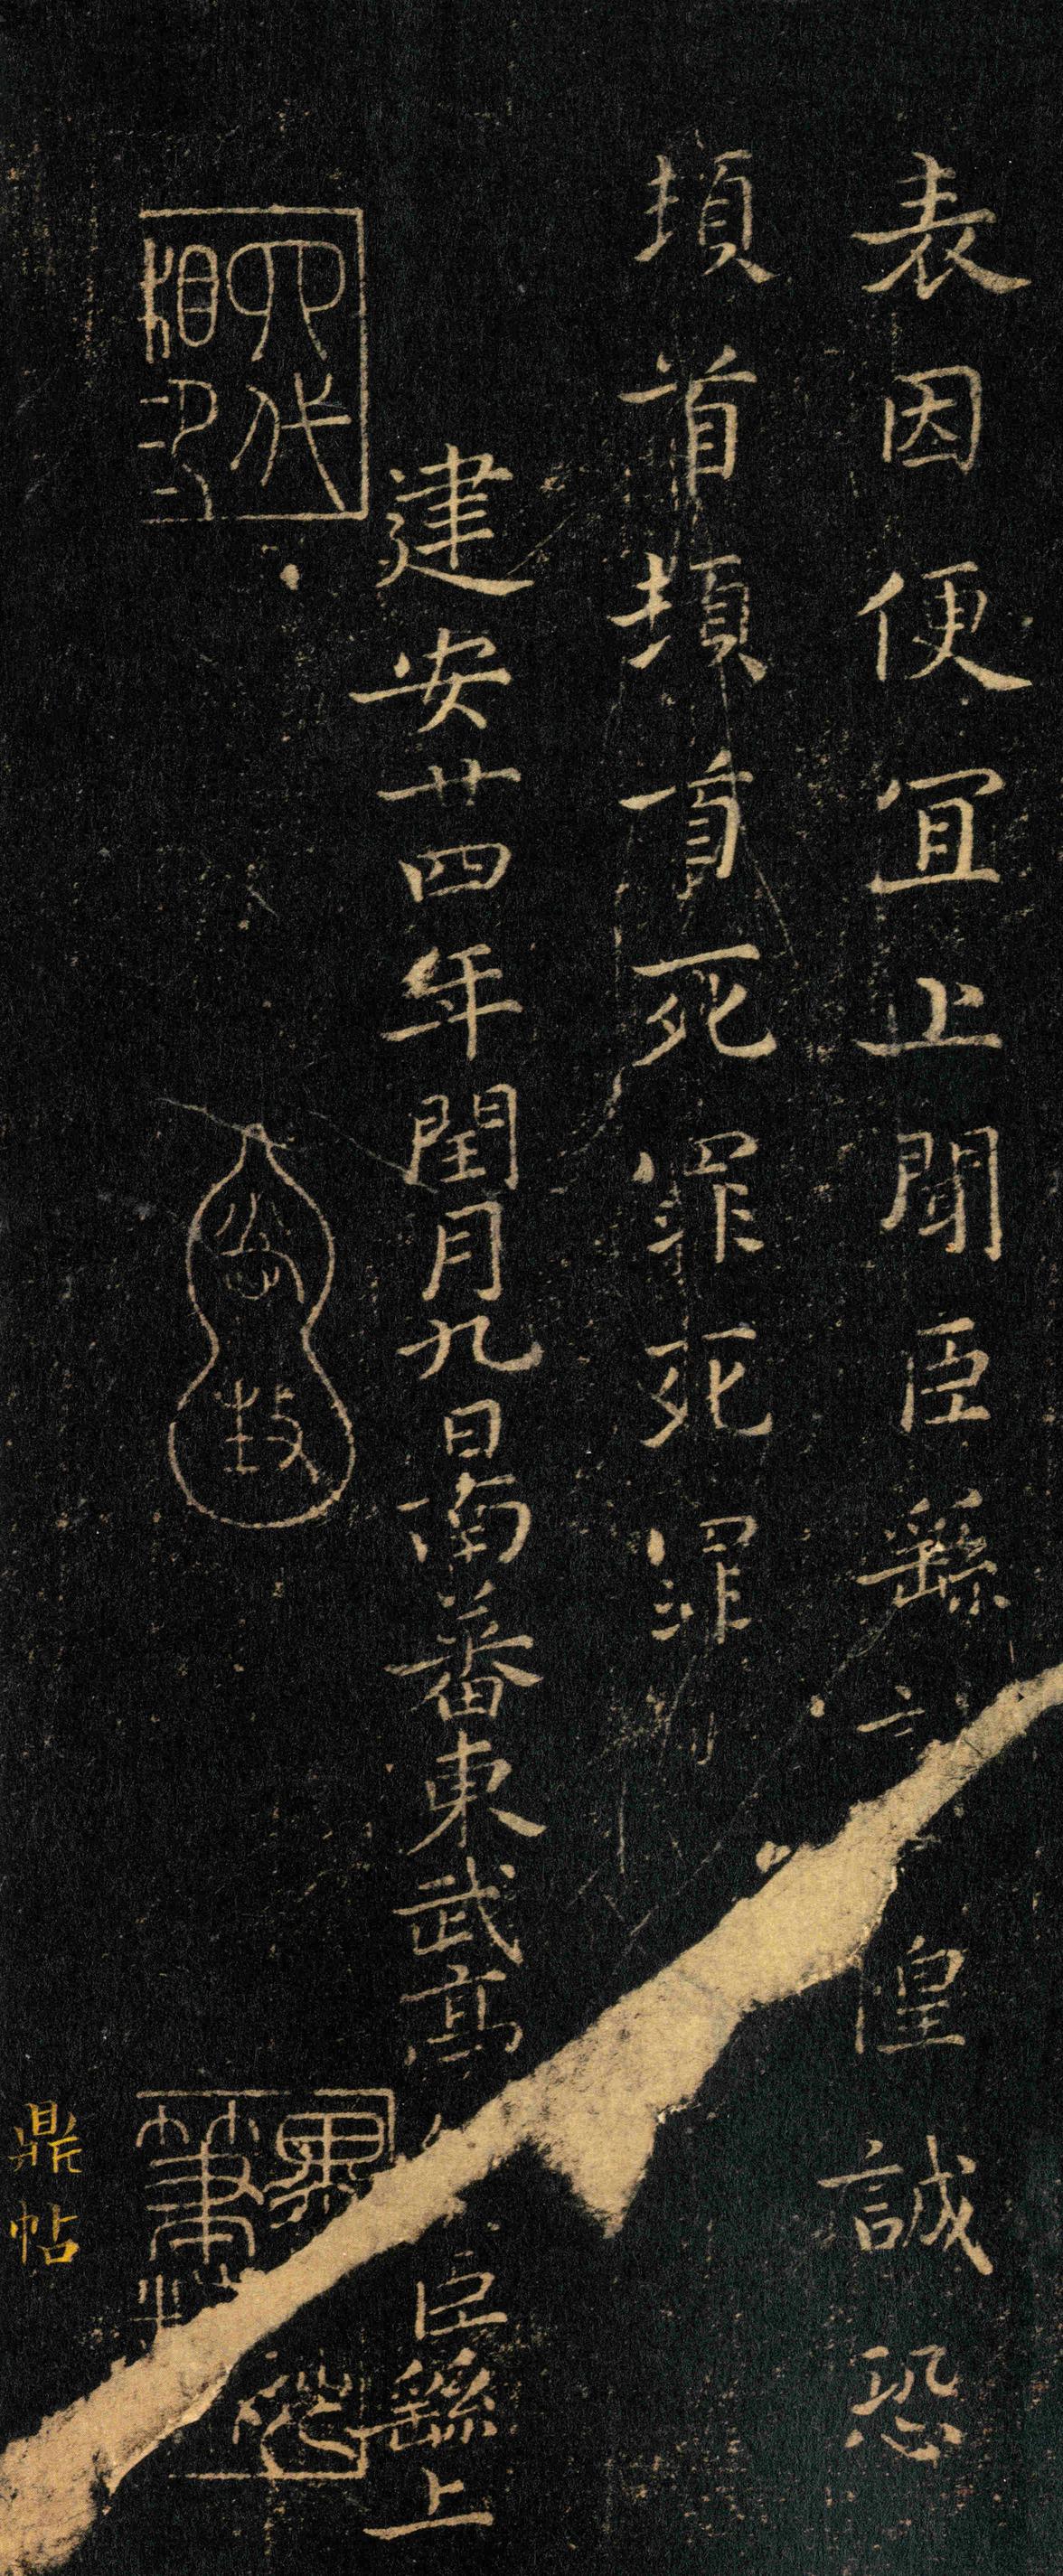 表因便冝上聞臣繇惶誠恐
頓首頓首死罪死罪
建安廿四年閏月九日南蕃東武亭臣繇上
四代相印
鼎帖